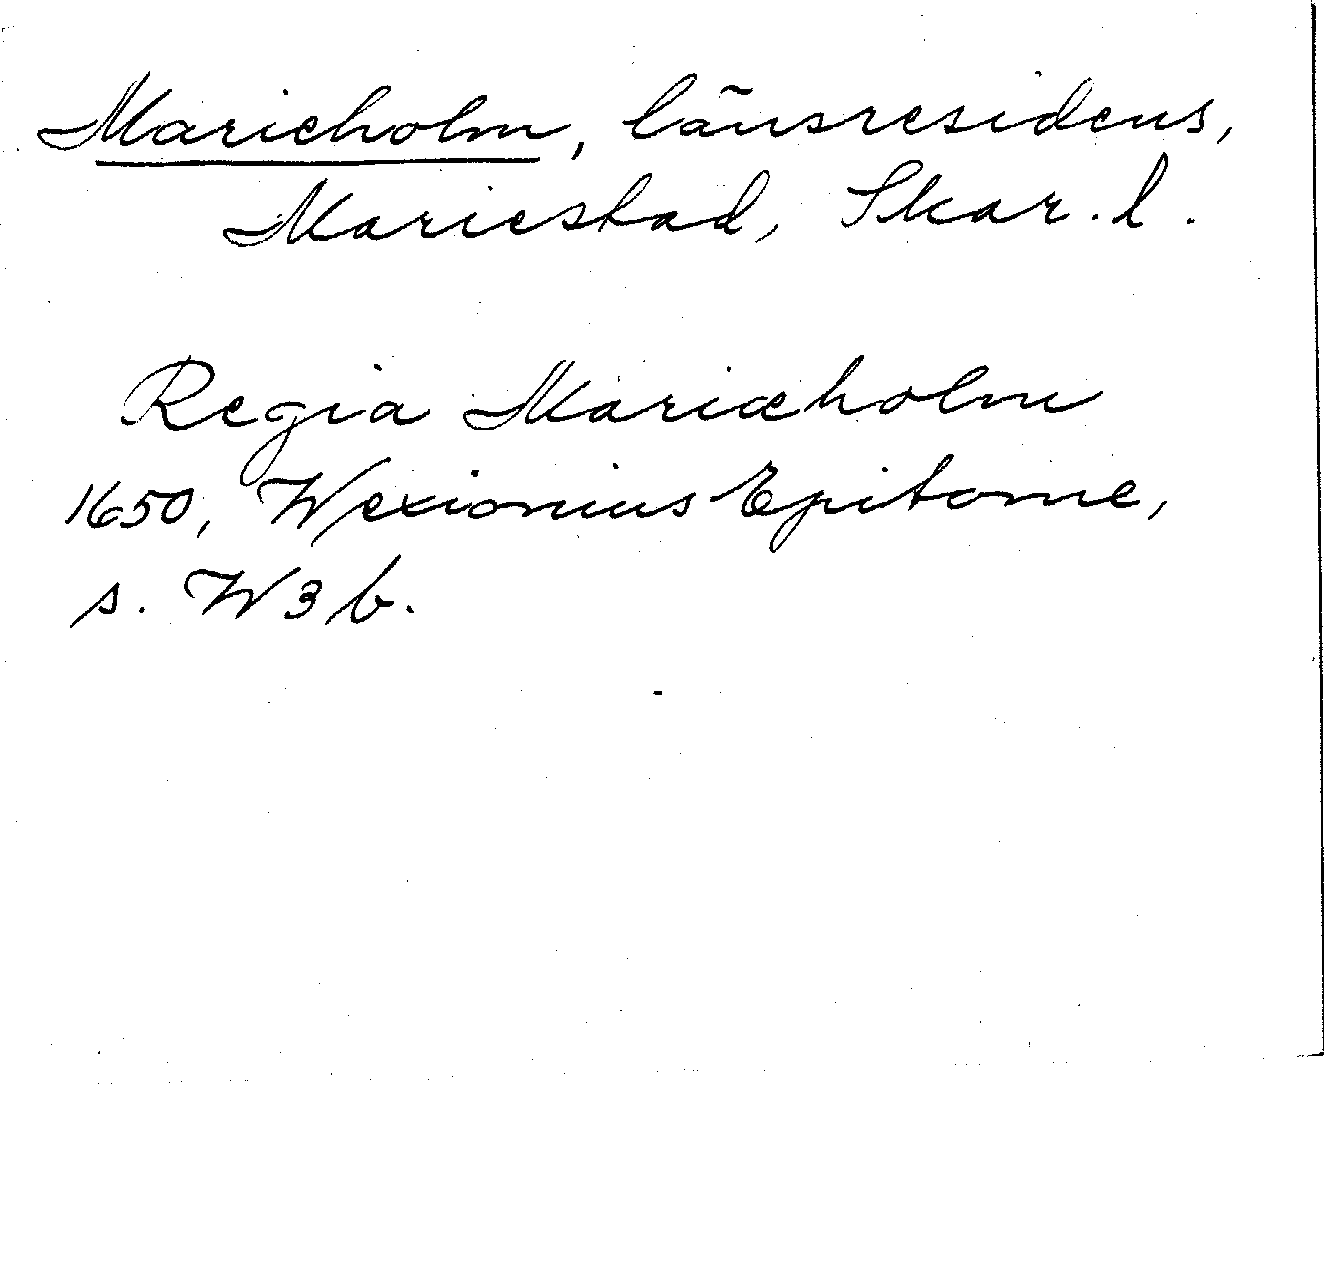 Marieholm, länsresidens,
Mariestad, Skar. l.
Regia Mariæholm
1650, Wexionius Epitome,
s. W3b.